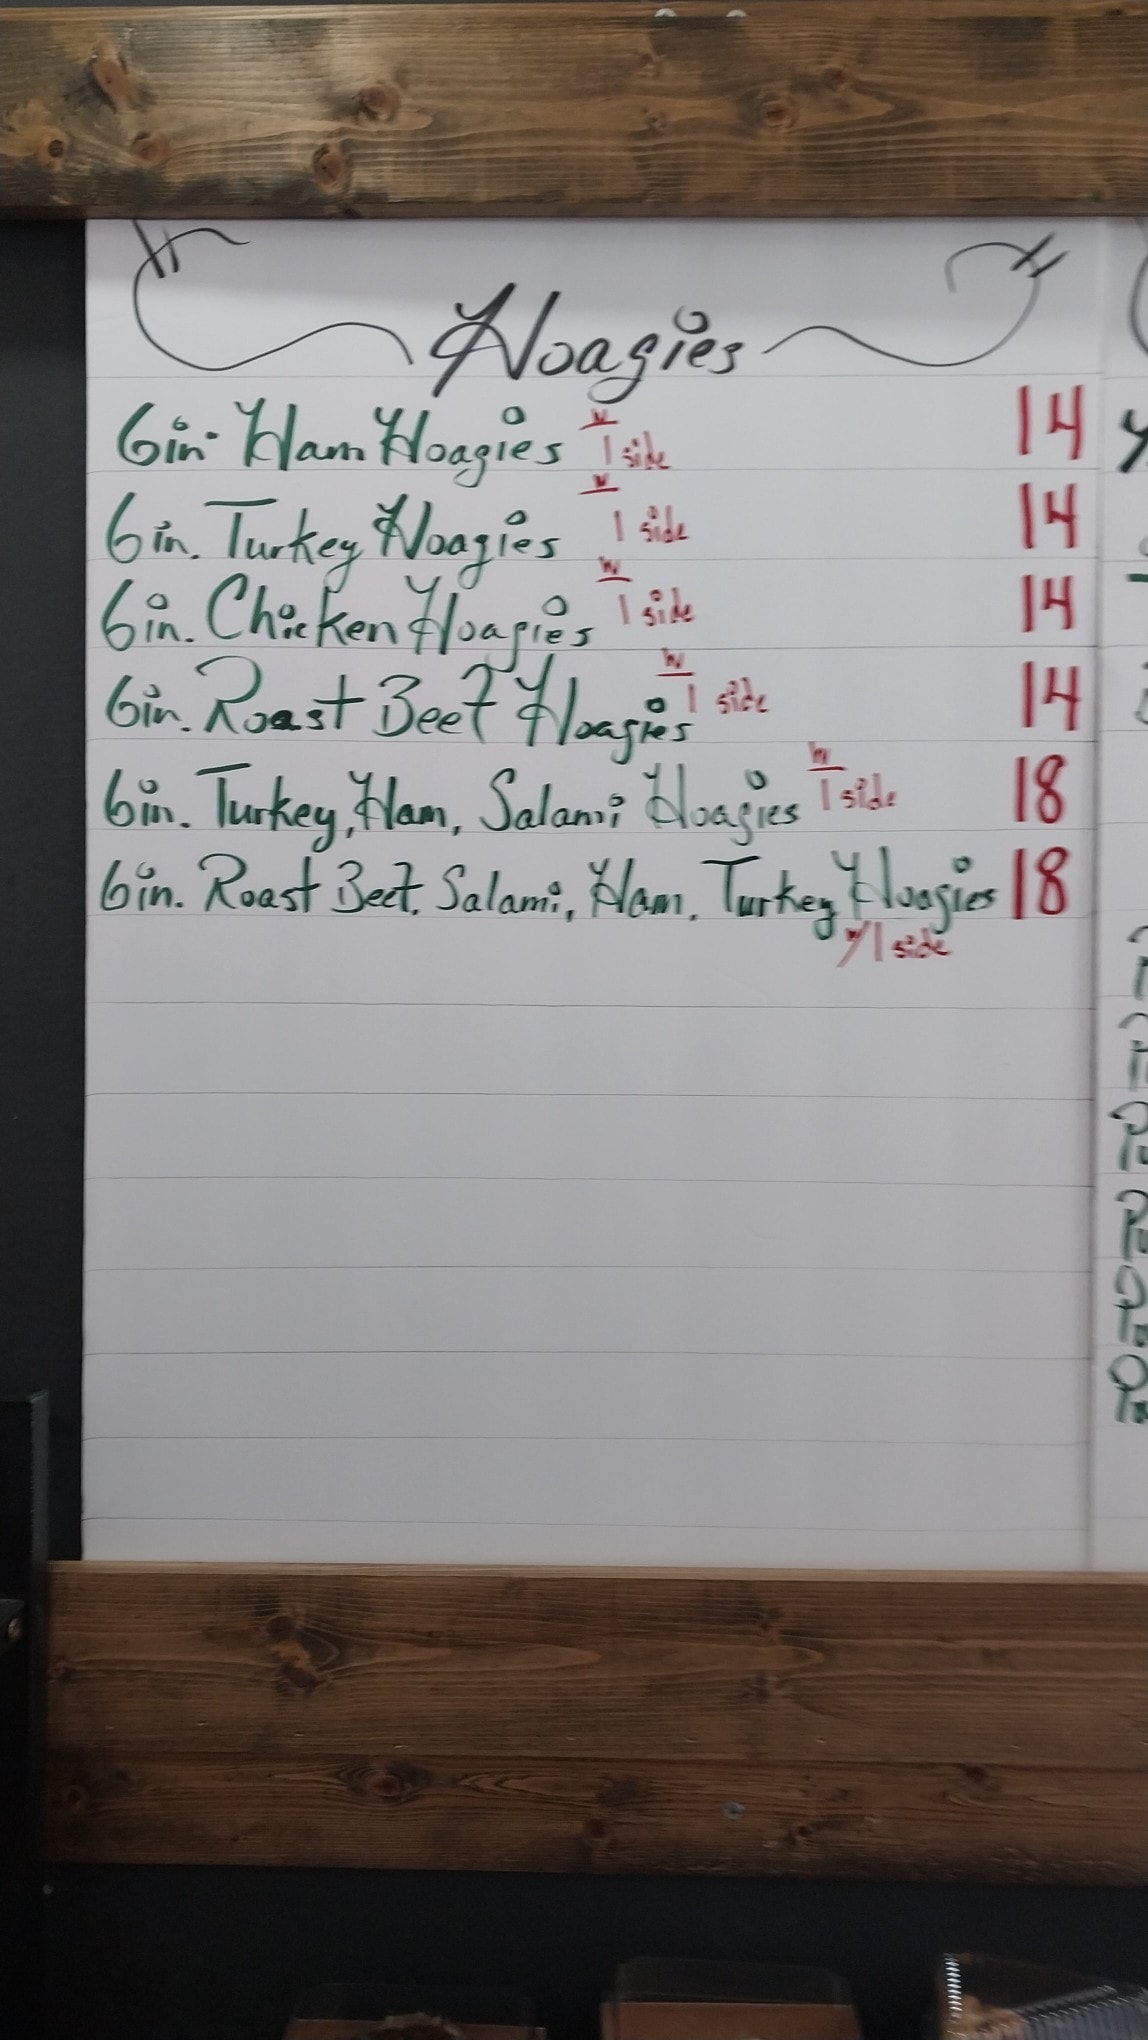 Hoagies
6in. Ham Hoagies w/ 1 side 14
6in. Turkey Hoagies w/ 1 side 14
6in. Chicken Hoagies w/ 1 side 14
6in. Roast Beef Hoagies w/ 1 side 14
6in. Turkey, Ham, Salami Hoagies w/ 1 side 18
6in. Roast Beef, Salami, Ham, Turkey Hoagies 18
w/ 1 side